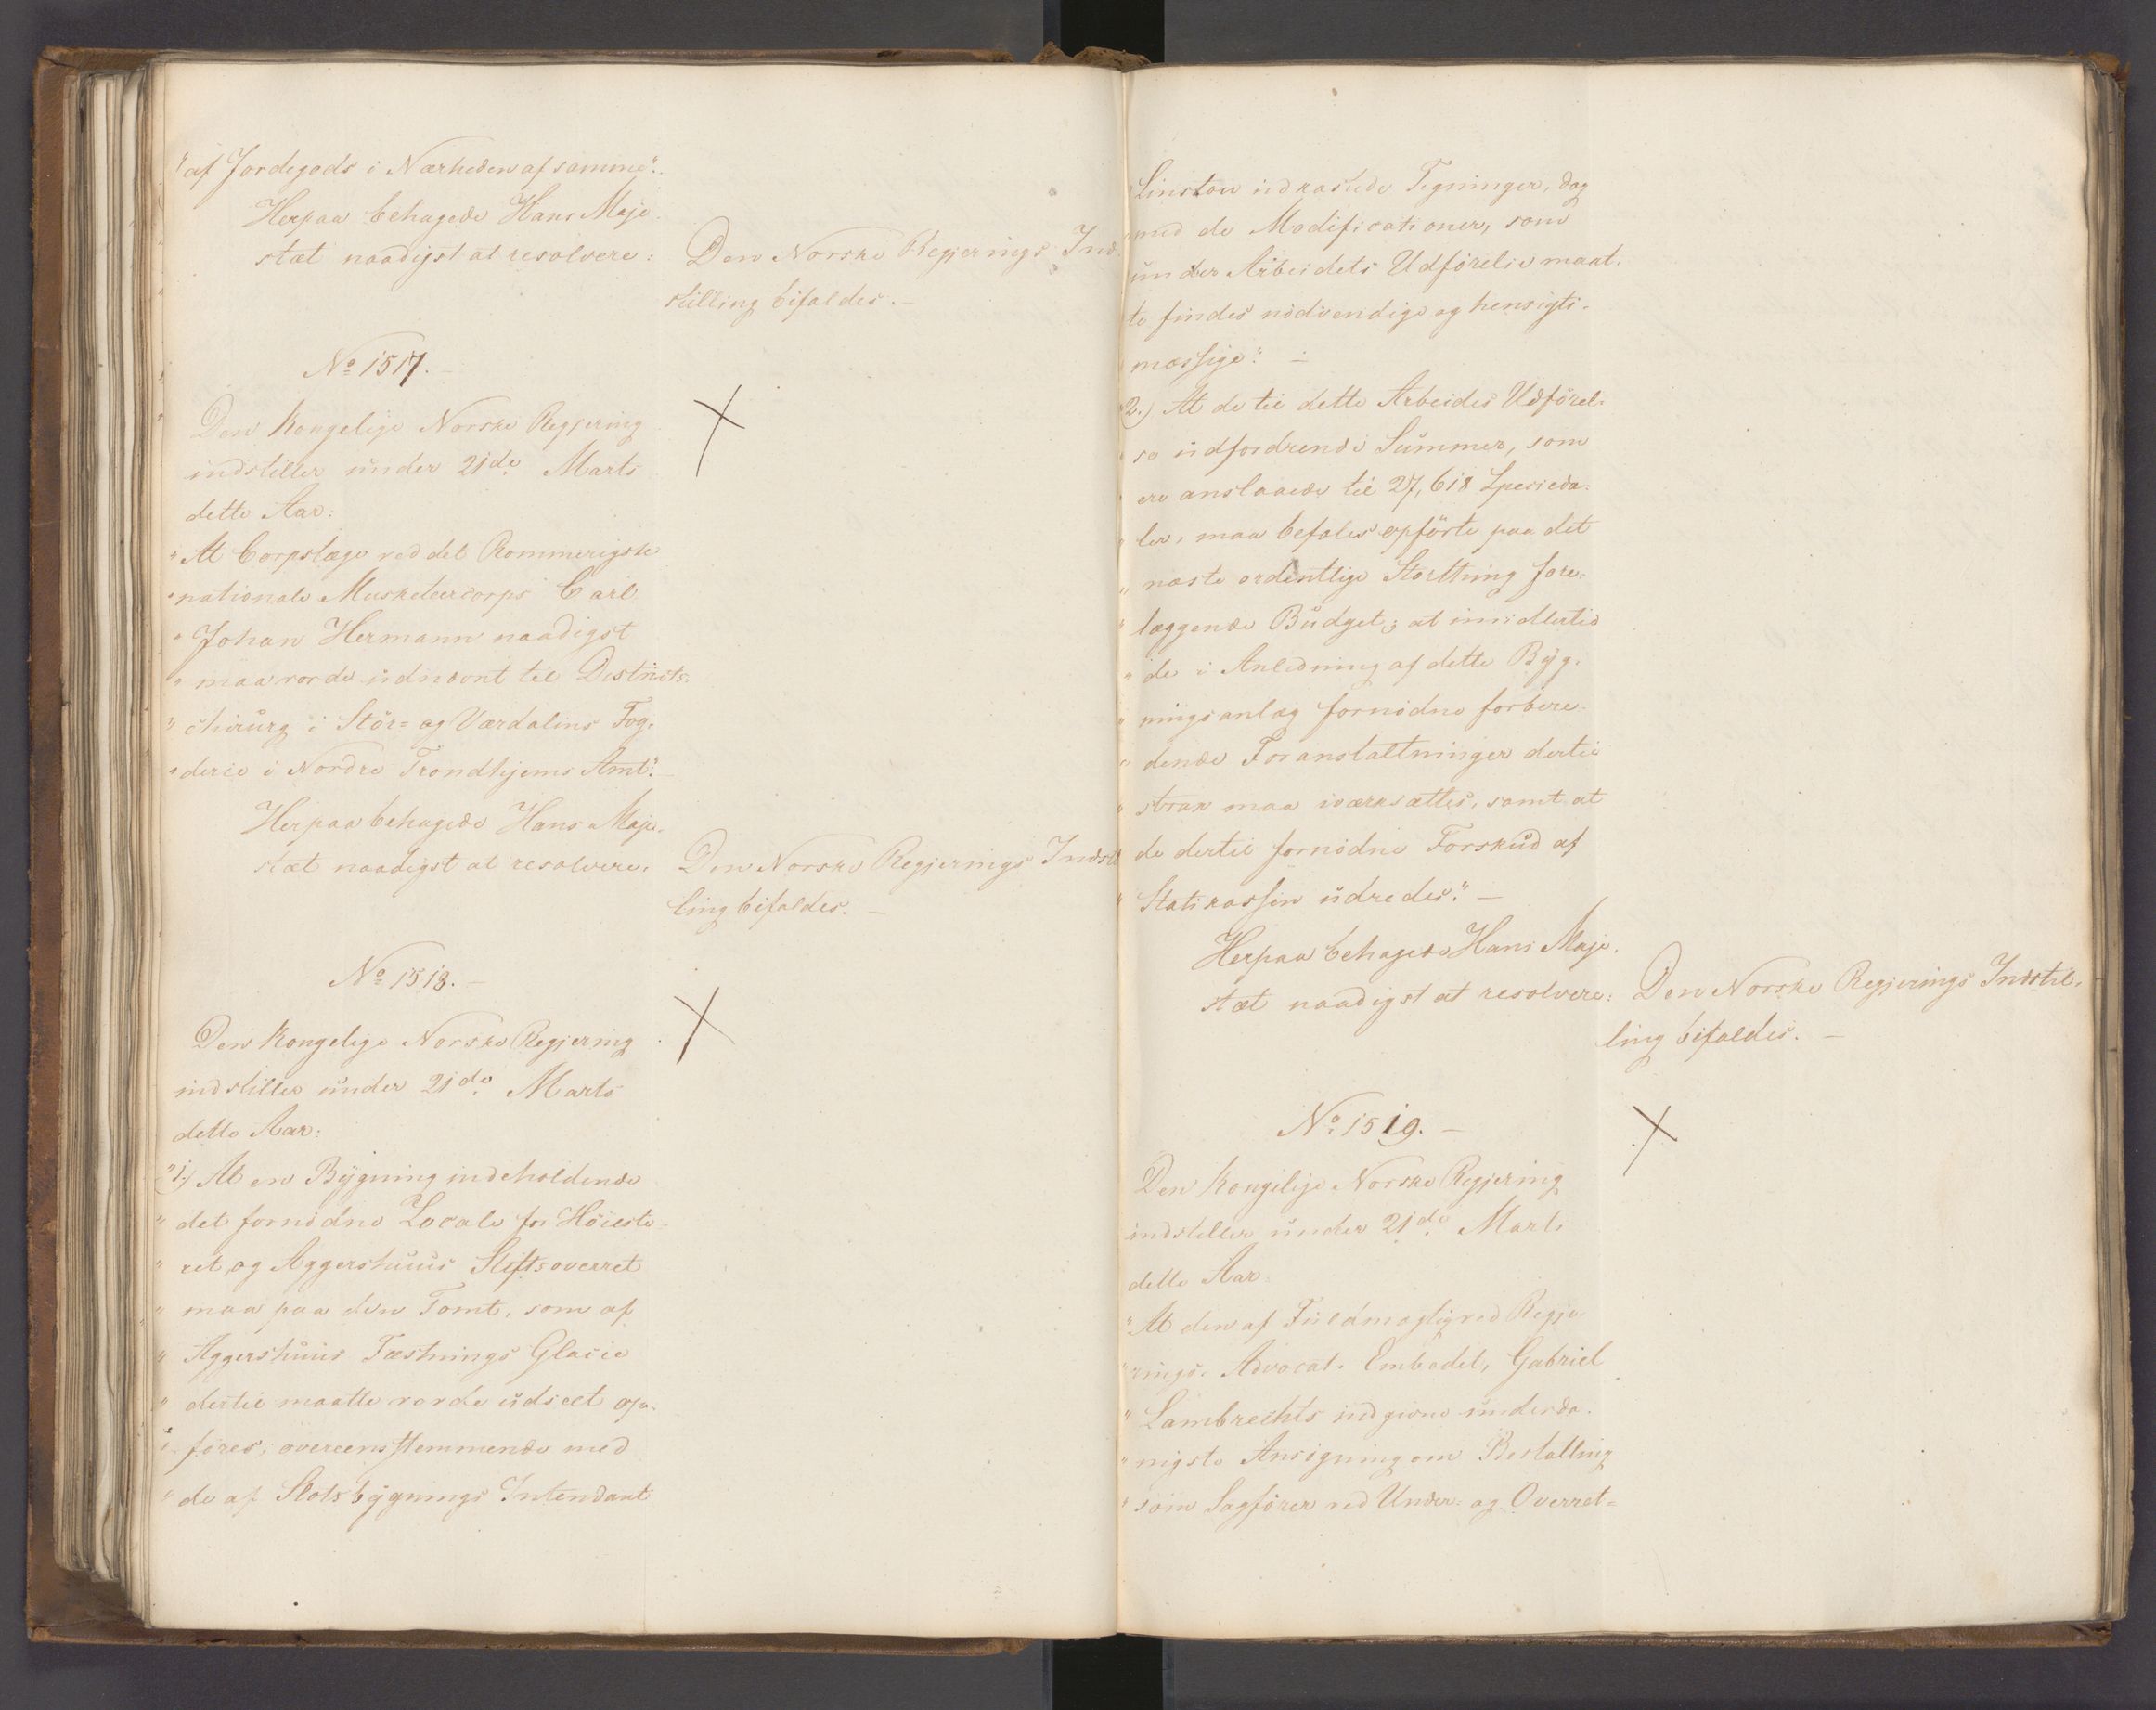 "af Jordegods i Nærheden af samme".
Herpaa behagede Hans Maje-
stæt naadigst at resolvere:
Den Norske Regjerings Ind-
stilling bifaldes.-
No 1517.-
Den Kongelige Norske Regjering
indstiller under 21de Marts
dette Aar:
"At Corpslæge ved det Rommerigske
"nationale Musketeercorps Carl
"Johan Hermann naadigst
"maa vorde udnævnt til Districts-
"chirurg i Stør- og Værdalens Fog-
"derie i Nordre Trondhjems Amt".-
Herpaa behagede Hans Maje-
stæt naadigst at resolvere:
Den Norske Regjerings Indstil
ling bifaldes.-
No 1518.-
Den Kongelige Norske Regjering
indstiller under 21de Marts
dette Aar:
"1.) At en Bygning indeholdende
"det fornødne Locale for Høieste-
"ret og Aggershuus Stiftsoverret
"maa paa den Tomt, som af
"Aggershuus Fæstnings Glacie
"dertil maatte vorde udseet op-
"føres, overeensstemmende med
"de af Slotsbygnings Intendant
Linstow udkastede Tegninger, dog
"med de Modificationer, som
under Arbeidets Udførelse maat-
te findes nødvendige og hensigts-
mæssige".-
"2.) At de til dette Arbeides Udførel-
"se udfordrende Summer, som
"ere anslaaede til 27,618 Specieda-
"ler, maa befales opførte paa det
"næste ordentlige Storthing fore-
"læggende Budget; at imidlertid
"de i Anledning af dette Byg-
"ningsanlæg fornødne forbere-
"dende Foranstaltninger dertil
"strax maa iværksættes, samt at
de dertil fornødne Forskud af
"Statskassen udredes".-
Herpaa behagede Hans Maje-
stæt naadigst at resolvere:
Den Norske Regjerings Indstil-
ling bifaldes.-
No 1519.-
Den Kongelige Norske Regjering
indstiller under 21de Marts
dette Aar:
"At den af Fuldmægtig ved Regje-
"rings-Advocat-Embedet, Gabriel
"Lambrechts indgivne underda-
"nigste Ansøgning om Bestalling
"som Sagfører ved Under- og Overret-